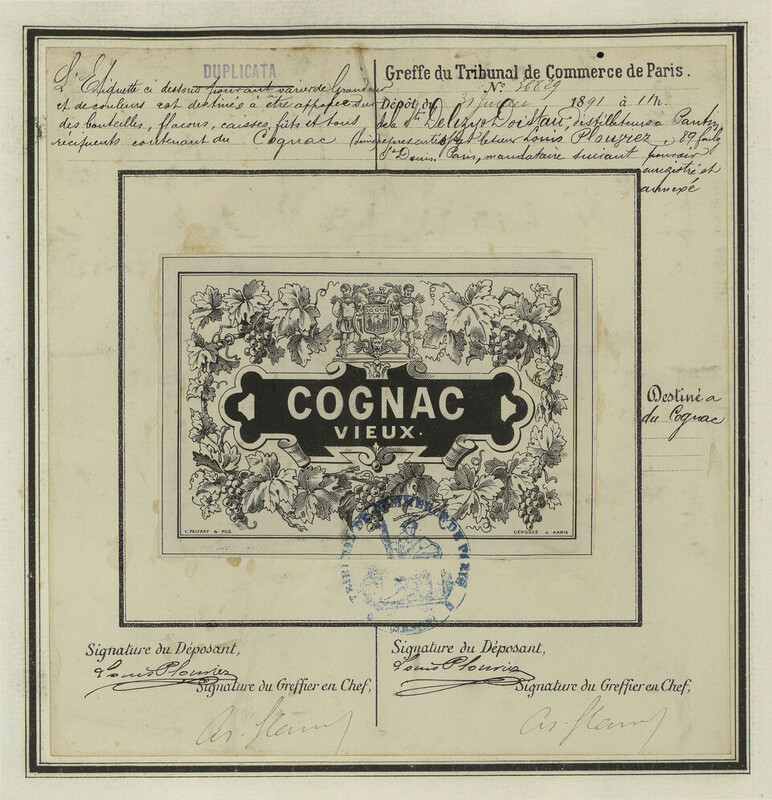 DUPLICATA
L'Etiquette ci dessous pouvant varier de Grandeur
et de couleurs est destinée à être apposée sur
des bouteilles, flacons, caisses, fûts et tous
récipients contenant du Cognac
Greffe du Tribunal de Commerce de Paris.
N° 36869
Dépôt du 31 1891 à 11h.
des Srs Delizy & Doistau, distillateurs a Pantin
représentés par le sieur Louis Plouviez, 89 faubg
St Denis, Paris, mandataire suivant pouvoir
enregistré et
annexé
COGNAC
VIEUX.
& FILS
DÉPOSÉE A PARIS
TRIBUNAL DE COMMERCE DE PARIS
SEINE
Destiné a
du Cognac
Signature du Déposant,
Louis Plouviez
Signature du Greffier en Chef,
Signature du Déposant,
Louis Plouviez
Signature du Greffier en Chef,